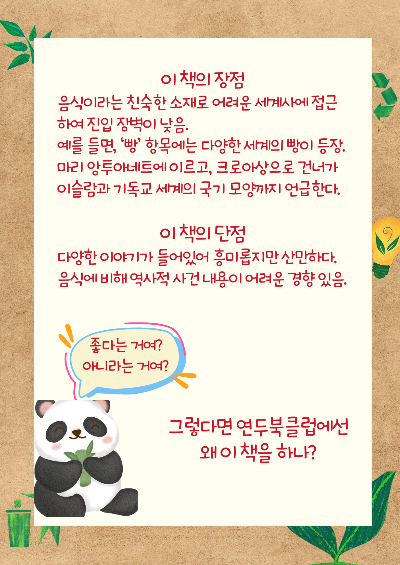 이 책의 장점
음식이라는 친숙한 소재로 어려운 세계사에 접근
하여 진입 장벽이 낮음.
예를 들면, '빵' 항목에는 다양한 세계의 빵이 등장.
마리 앙투아네트에 이르고, 크로아상으로 건너가
이슬람과 기독교 세계의 국기 모양까지 언급한다.
이 책의 단점
다양한 이야기가 들어있어 흥미롭지만 산만하다.
음식에 비해 역사적 사건 내용이 어려운 경향 있음.
좋다는 거여?
아니라는 거여?
그렇다면 연두북클럽에선
왜 이 책을 하나?